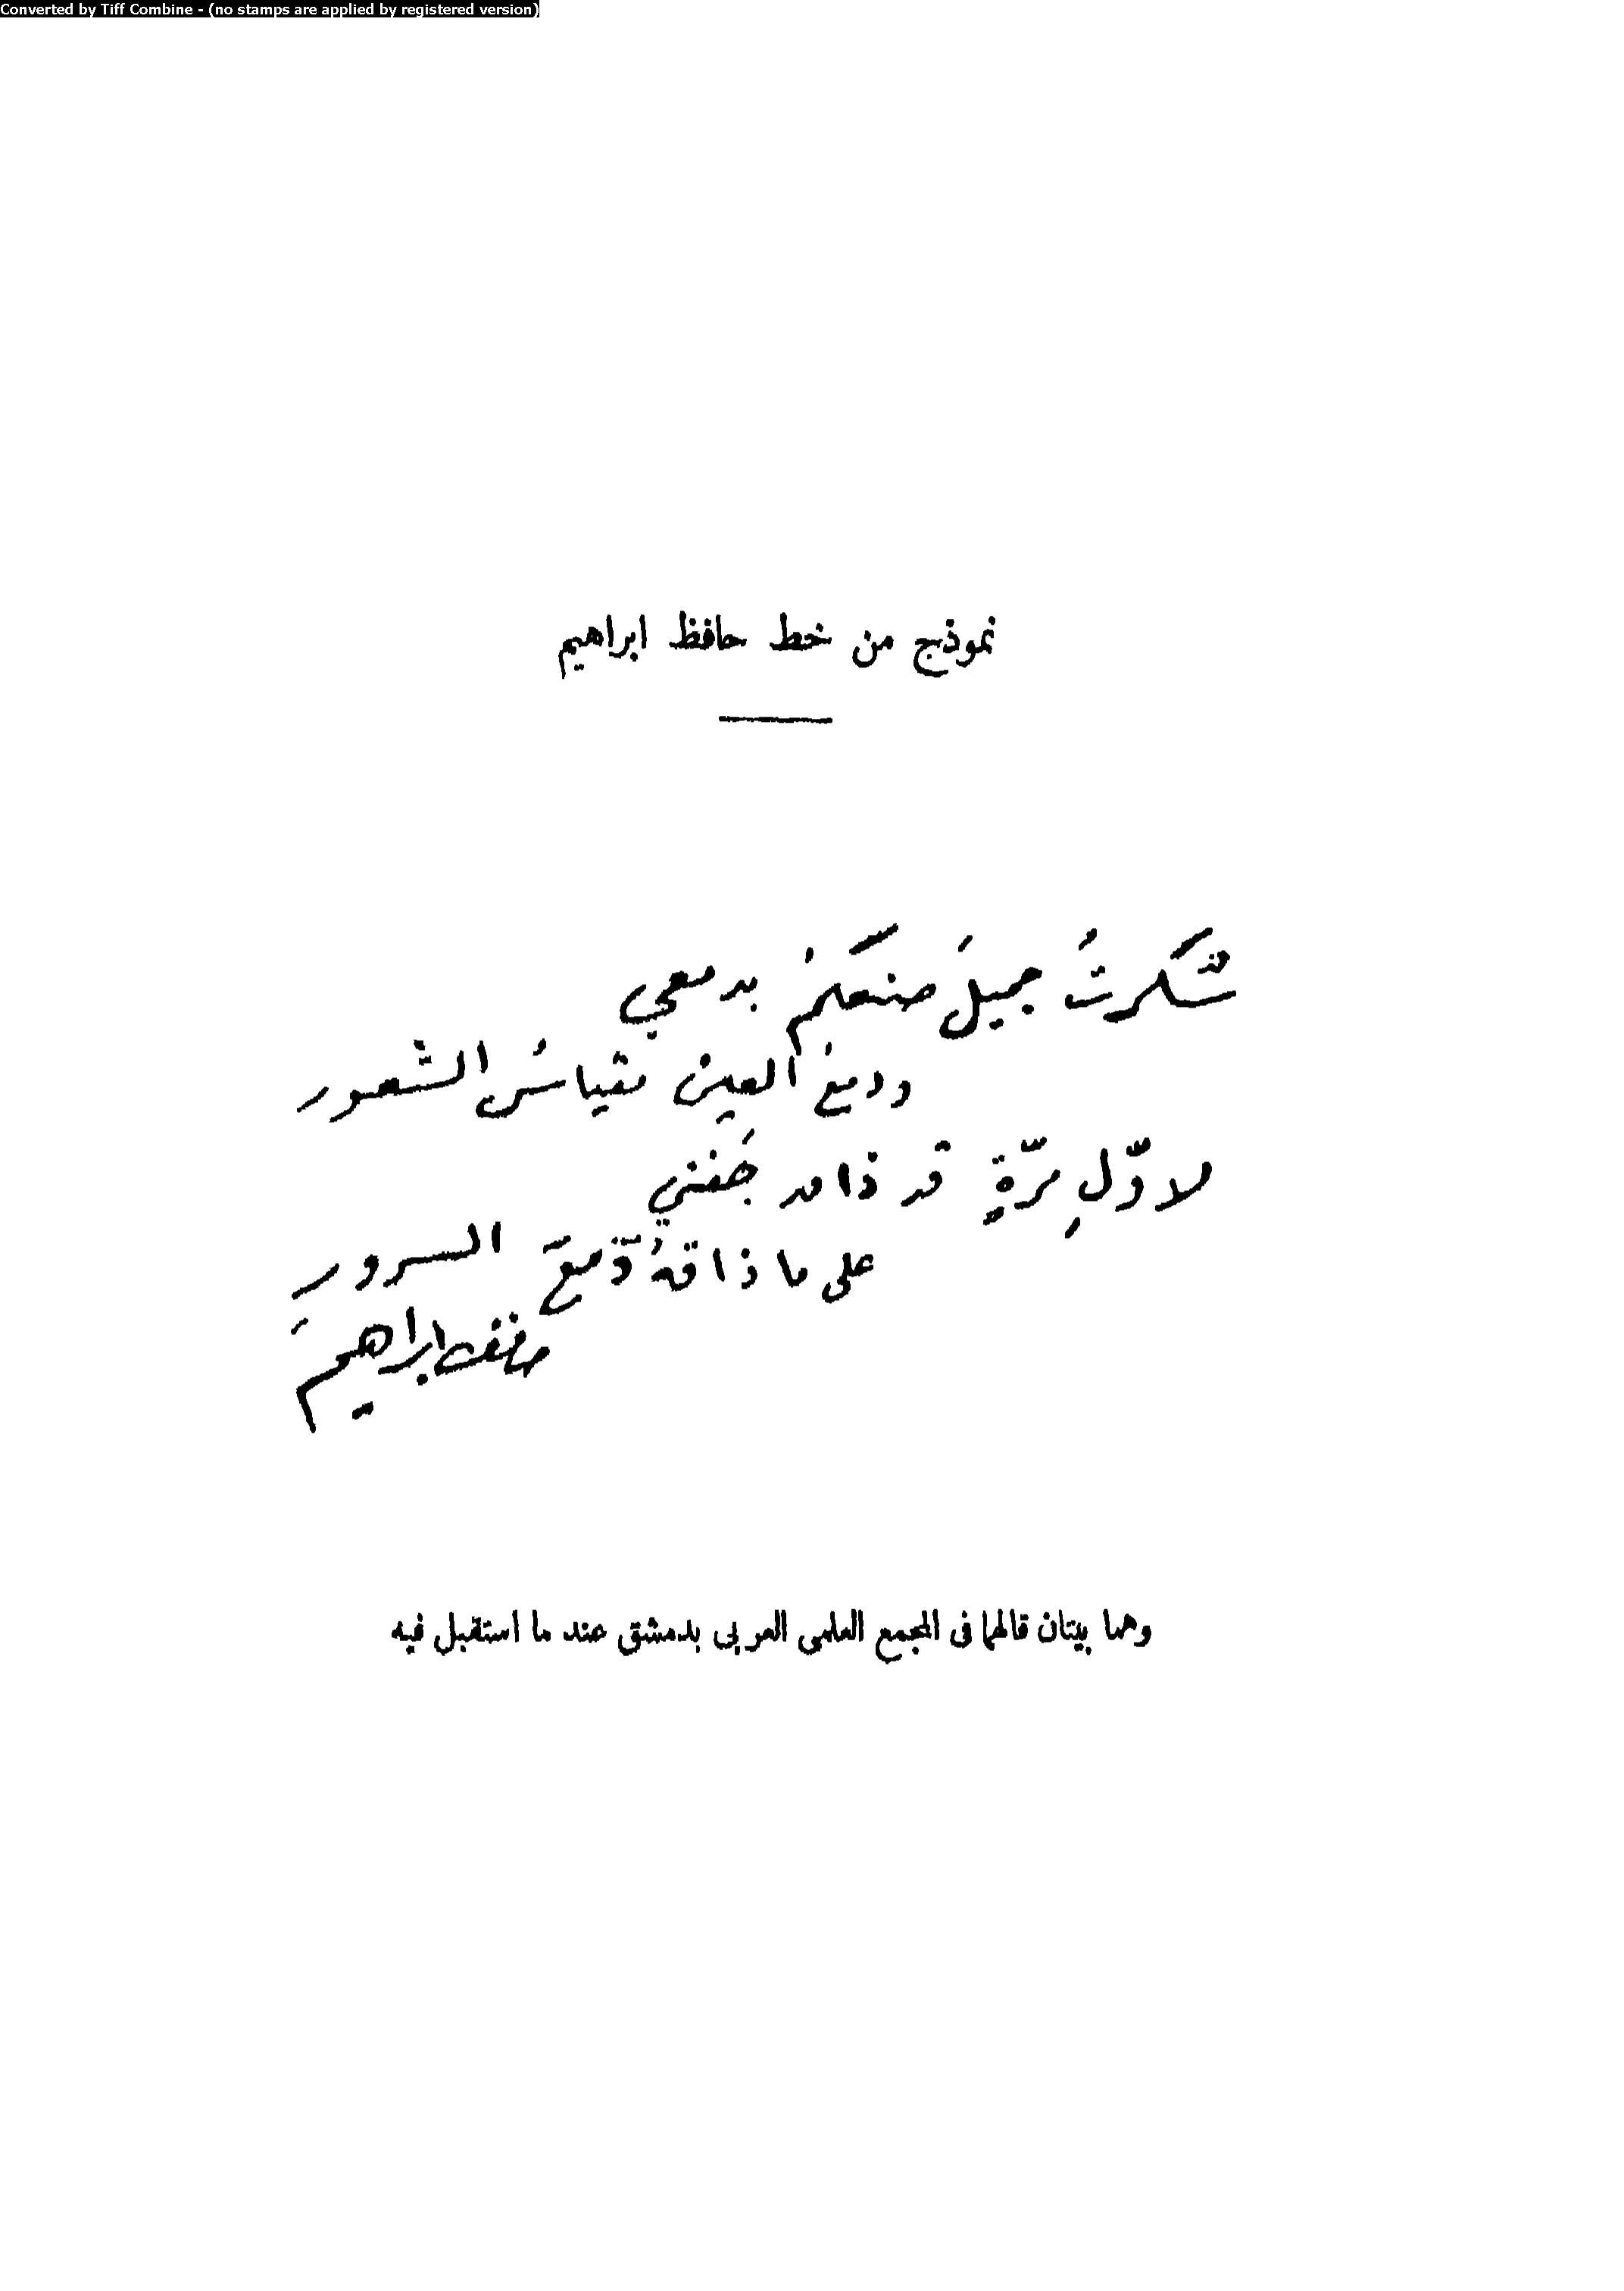 Converted by Tiff Combine - (no stamps are applied by registered version)
نموذج من خط حافظ ابراهيم
شكرتُ جميلَ صنعكمُ بدمعي
ودمعُ العينِ مقياسُ الشعور
لاوّلِ مرّةٍ قد ذاق جَفني
على ما ذاقهُ دمعَ السرورِ
حافظ ابراهيم
وهما بيتان قالهما فى المجمع العلمى العربى بدمشق عند ما استقبل فيه